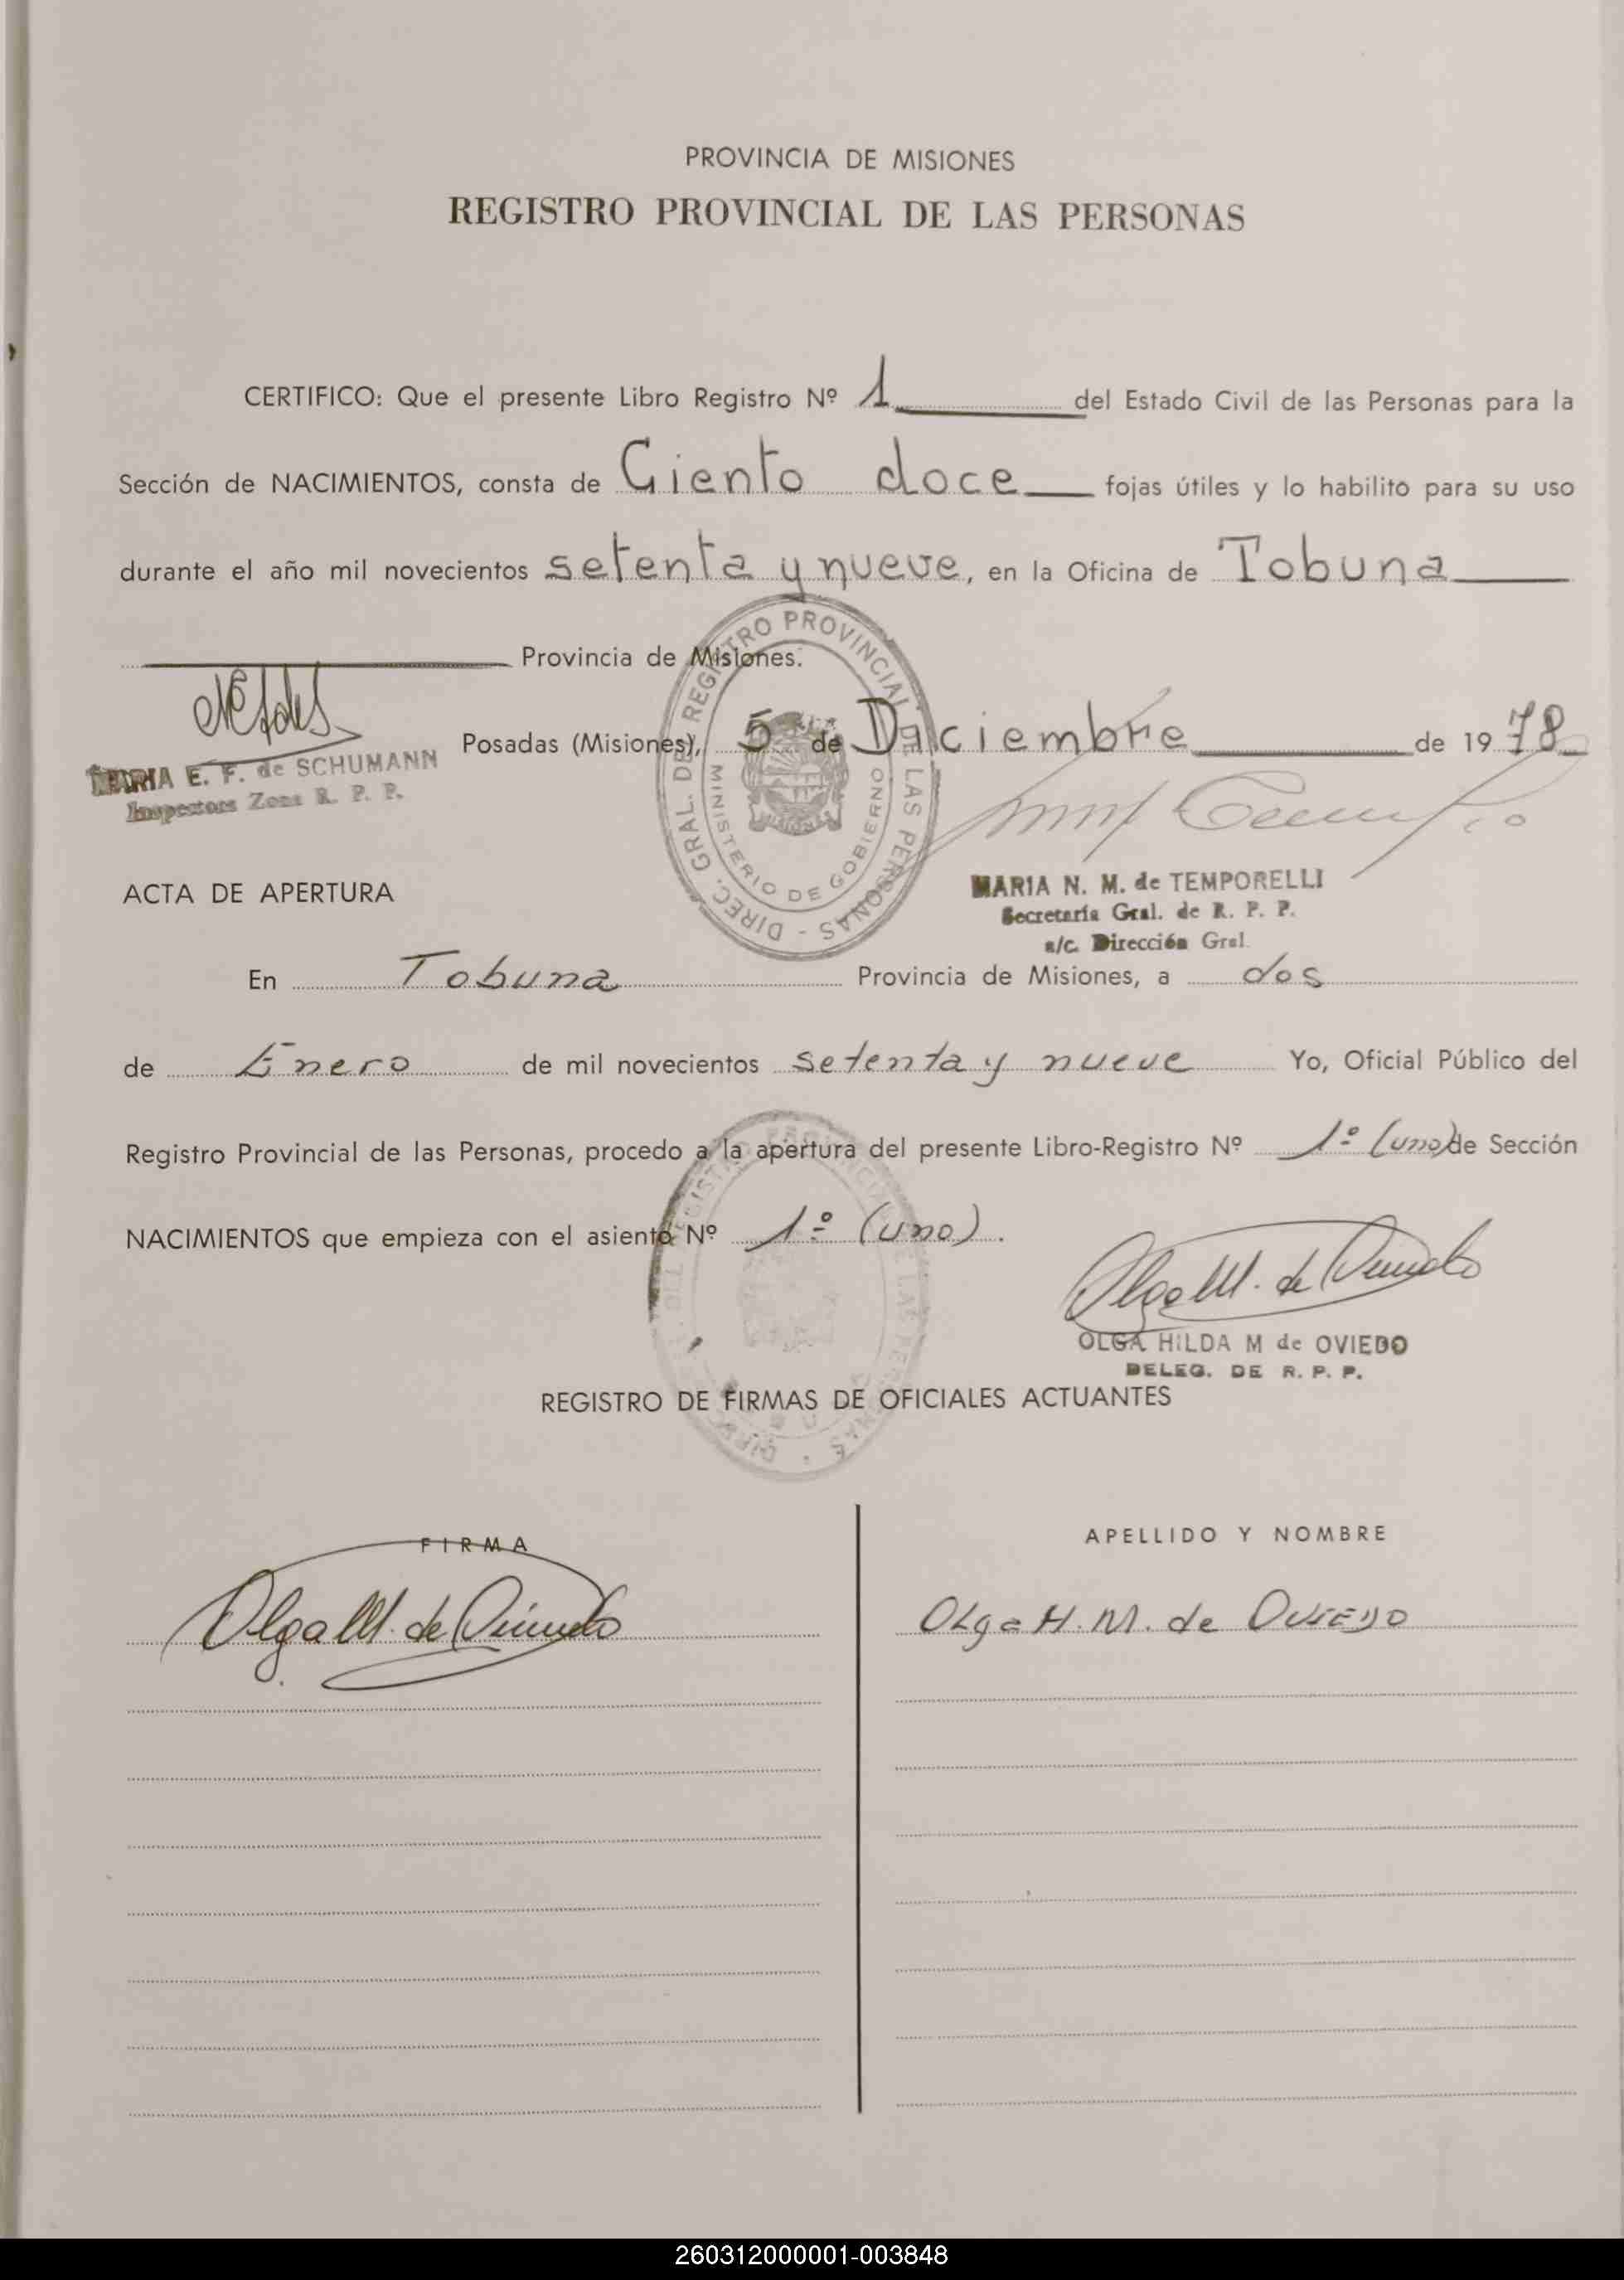 PROVINCIA DE MISIONES
REGISTRO PROVINCIAL DE LAS PERSONAS
CERTIFICO: Que el presente Libro Registro Nº 1 del Estado Civil de las Personas para la
Sección de NACIMIENTOS, consta de Ciento doce fojas útiles y lo habilito para su uso
durante el año mil novecientos setenta y nueve, en la Oficina de Tobuna
Provincia de Misiones.
Posadas (Misiones), 5 de Diciembre de 19 78
MARIA E. F. de SCHUMANN
Inspectora Zona R. P. P.
DIREC. GRAL. DEL REGISTRO PROVINCIAL DE LAS PERSONAS -
MINISTERIO DE GOBIERNO
MISIONES
MARIA N. M. de TEMPORELLI
Secretaría Gral. de R. P. P.
a/c. Dirección Gral.
ACTA DE APERTURA
En Tobuna Provincia de Misiones, a dos
de Enero de mil novecientos setenta y nueve Yo, Oficial Público del
Registro Provincial de las Personas, procedo a la apertura del presente Libro-Registro Nº 1º (uno) de Sección
NACIMIENTOS que empieza con el asiento Nº 1º (uno).
Olga M. de Oviedo
OLGA HILDA M de OVIEDO
DELEG. DE R. P. P.
REGISTRO DE FIRMAS DE OFICIALES ACTUANTES
FIRMA
APELLIDO Y NOMBRE
Olga M. de Oviedo
OLga H. M. de OVIEDO
260312000001-003848